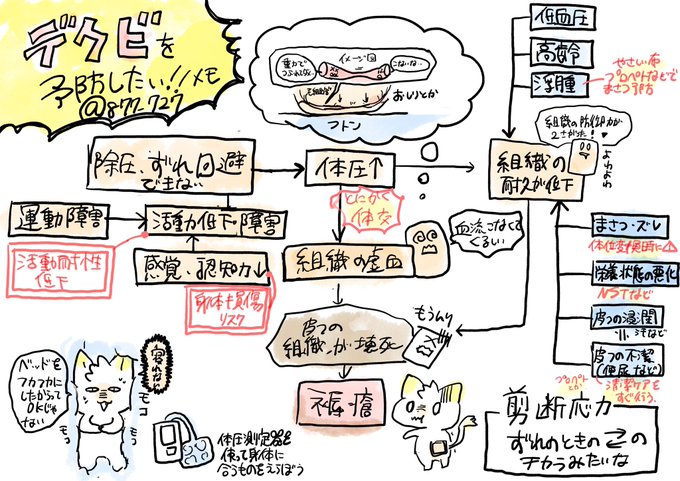 デクビを
予防したい!!メモ
@877_727
重力で
つぶれて死ぬ
イメージ図
こないな…
毛細血管
おしりとか
フトン
低血圧
高齢
浮腫
やさしい布
プロペトなどで
まさつ予防
組織の防御力が
2さがった!
よわ
よわ
除圧、ずれ回避
できない
体圧↑
組織の
耐久が低下
とにかく
体交
運動障害
活動低下・障害
活動耐性
低下
感覚、認知力↓
身体損傷
リスク
組織の虚血
血流こなくて
くるしい
まさつ・ズレ
体位変換時に
栄養状態の悪化
NSTなど
皮フの浸潤
皮フの不潔
(便尿など)
プロペト
とか
清潔ケアを
すぐ行う。
皮フの
組織が壊死
もうムリ
褥瘡
ベッドを
フカフカに
したからって
OKじゃ
ない
寝れない
モコ
モコ
体圧測定器を
使って身体に
合うものをえらぼう
剪断応力
ずれのときの⇄の
チカラみたいな